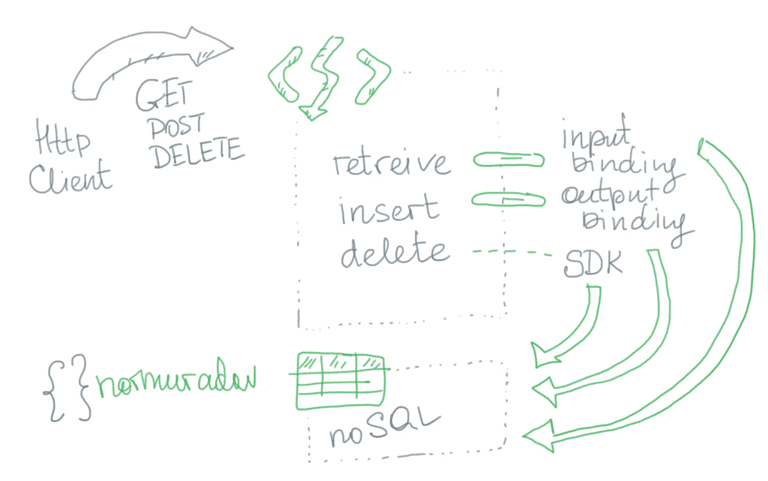 Http
Client
GET
POST
DELETE
retreive
insert
delete
input
binding
output
binding
SDK
{ } normuradov
noSQL